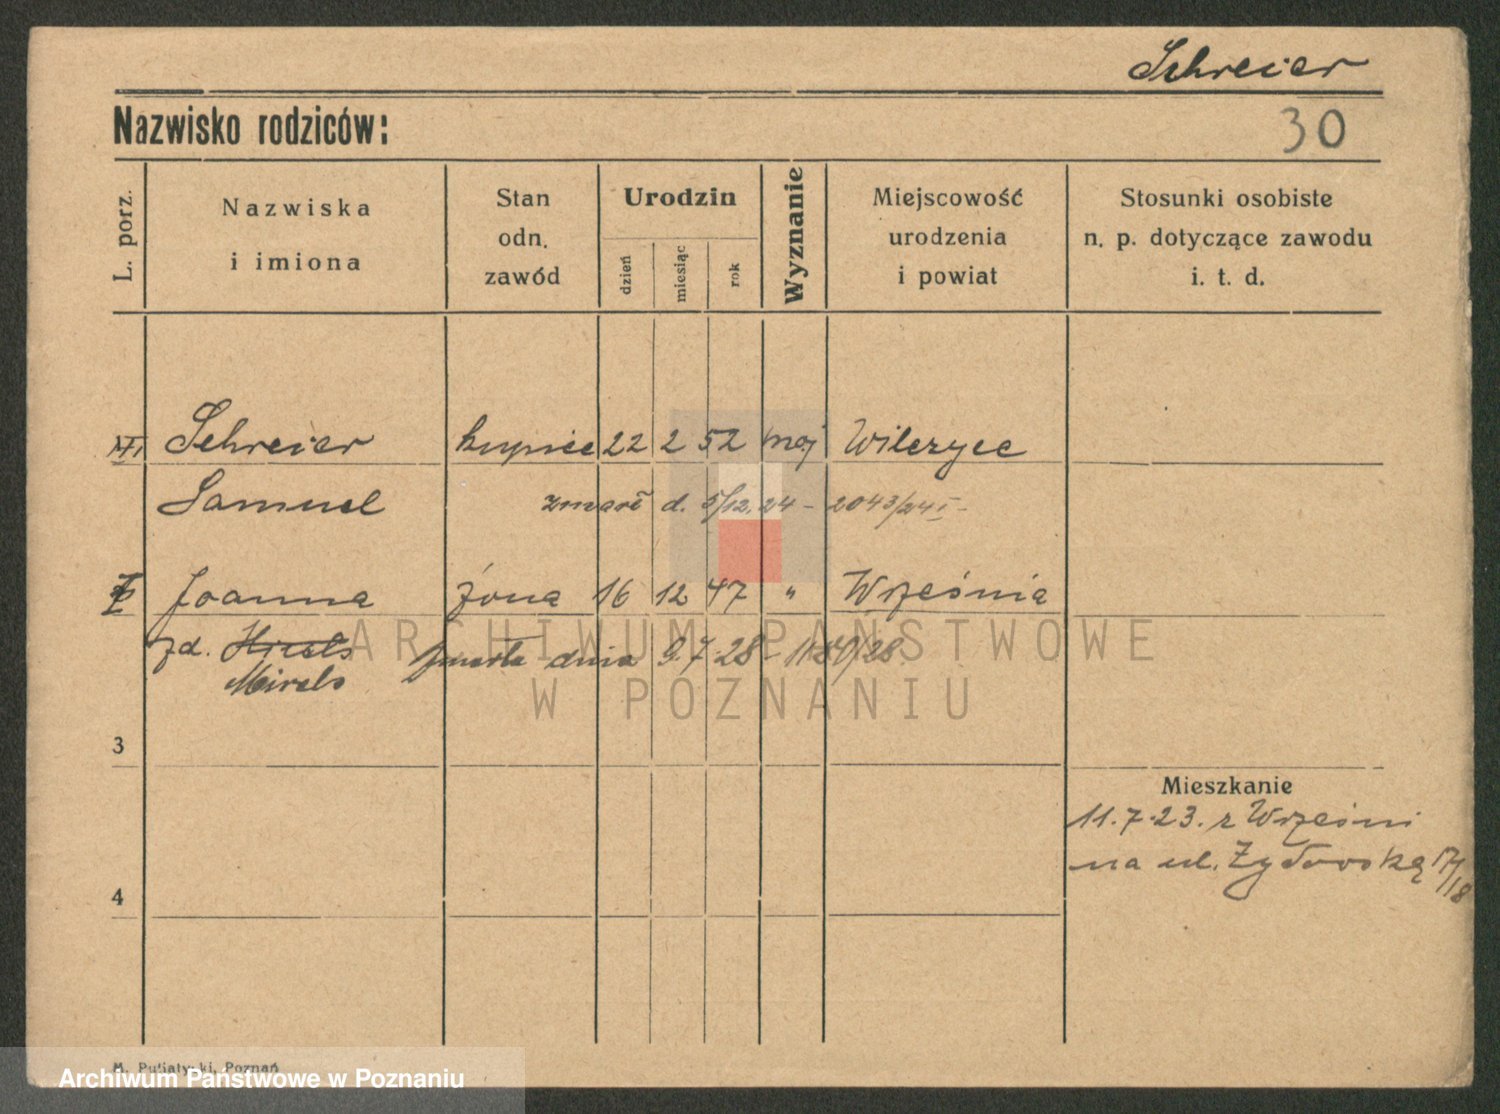 Schreier
Nazwisko rodziców:
30
L. porz.
Nazwiska
i imiona
Stan
odn.
zawód
Urodzin
dzień
miesiąc
rok
Wyznanie
Miejscowość
urodzenia
i powiat
Stosunki osobiste
n. p. dotyczące zawodu
i. t. d.
Schreier kupiec 22 2 52 moj Wilczyce
Samuel zmarł d. 5/12.24 - 2043/24 I -
Joanna żona 16 12 47 " Września
zd. Hirels zmarła dnia 9.7.28 -
Mirels
ARCHIWUM PAŃSTWOWE
W POZNANIU
3
Mieszkanie
11.7.23. z Wrześni
na ul. Żydowską 17/18
4
M. Putiatycki, Poznań
Archiwum Państwowe w Poznaniu